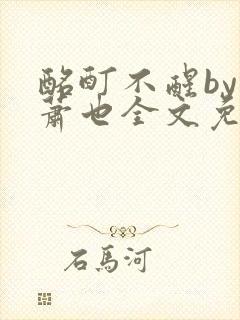 酩酊不醒by
萧也全文免
石馬河